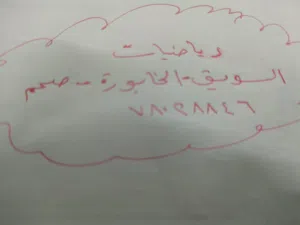 رياضيات
السويق-الخابورة-صحم
٧٨٠٩٨٨٤٦